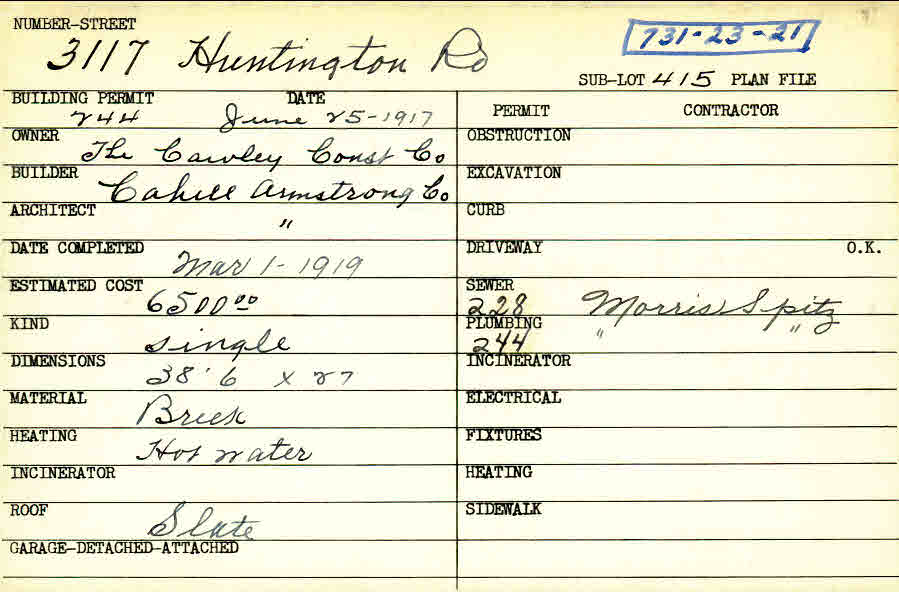 NUMBER-STREET
3117 Huntington Rd
731-23-21
SUB-LOT 415 PLAN FILE
BUILDING PERMIT DATE
244 June 25-1917
OWNER
The Cawley Const Co
BUILDER
Cahill Armstrong Co
ARCHITECT
"
DATE COMPLETED
Mar 1-1919
ESTIMATED COST
6500 00
KIND
single
DIMENSIONS
38'6 x 27
MATERIAL
Brick
HEATING
Hot water
INCINERATOR
ROOF
Slate
GARAGE-DETACHED-ATTACHED
PERMIT CONTRACTOR
OBSTRUCTION
EXCAVATION
CURB
DRIVEWAY O.K.
SEWER
228 Morris Spitz
PLUMBING
244 " "
INCINERATOR
ELECTRICAL
FIXTURES
HEATING
SIDEWALK